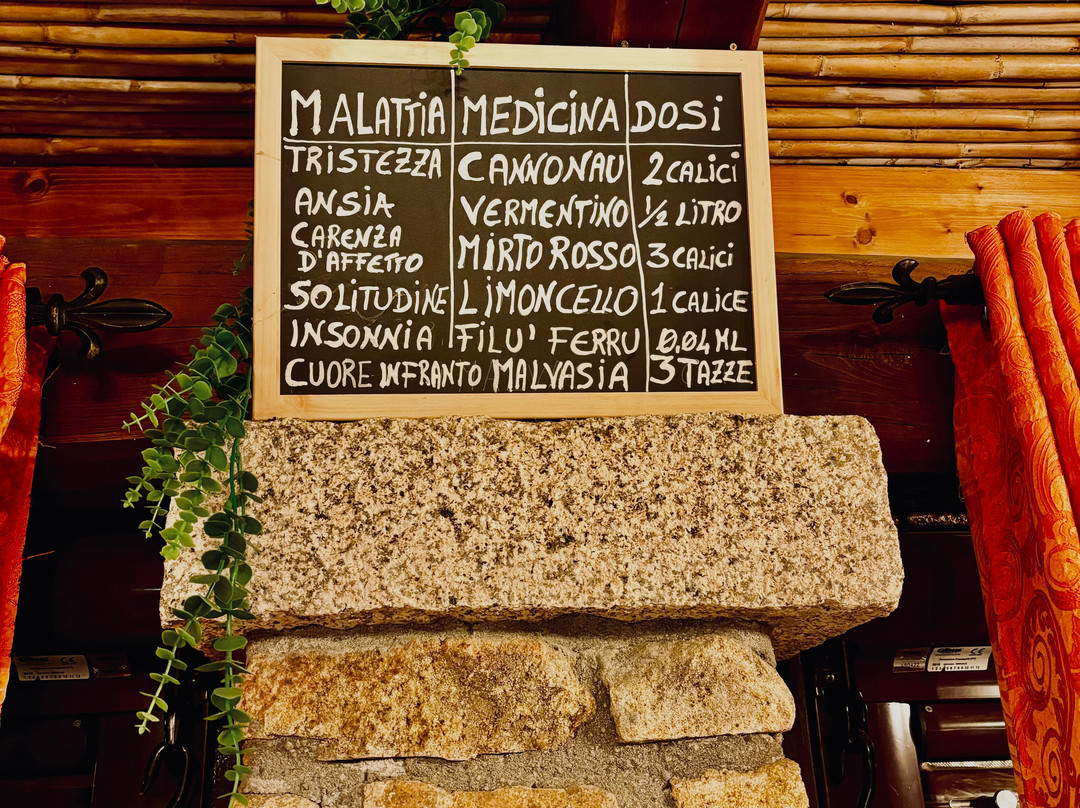 MALATTIA MEDICINA DOSI
TRISTEZZA CANNONAU 2 CALICI
ANSIA VERMENTINO ½ LITRO
CARENZA
D'AFFETTO MIRTO ROSSO 3 CALICI
SOLITUDINE LIMONCELLO 1 CALICE
INSONNIA FILU' FERRU 0,04 ML
CUORE INFRANTO MALVASIA 3 TAZZE